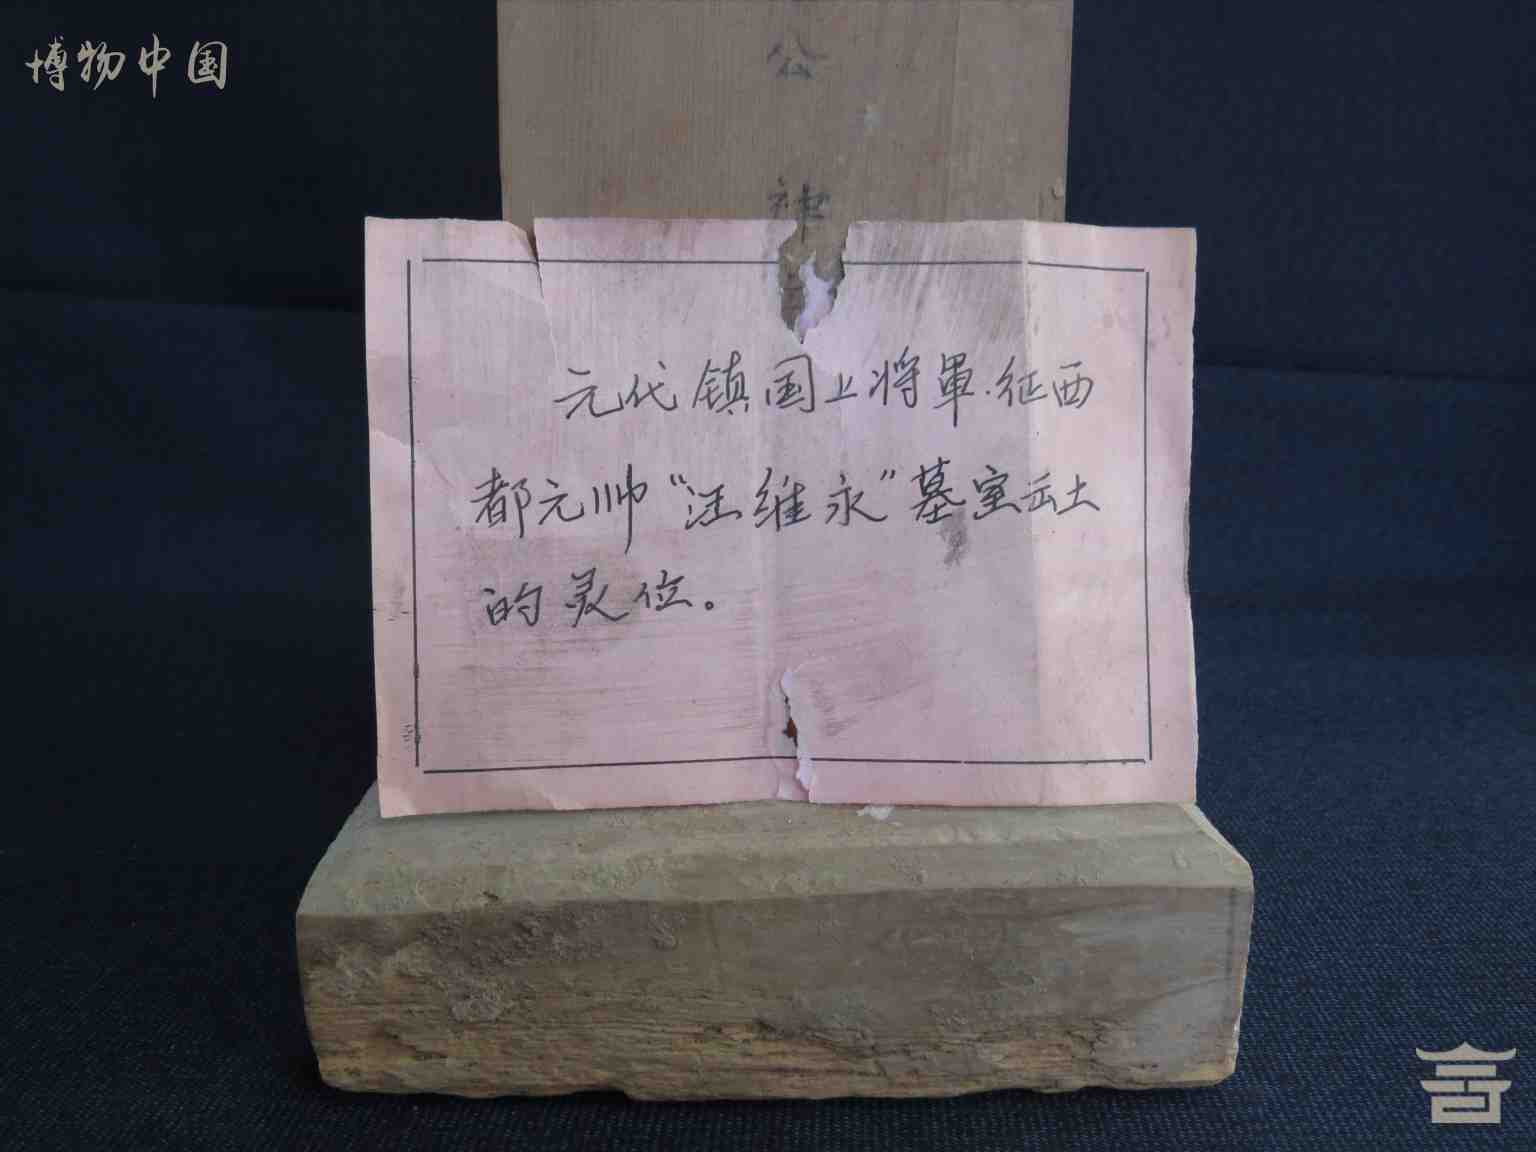 博物中国
公
神
元代镇国上将軍.征西
都元帅“汪维永”墓室云土
的灵位。